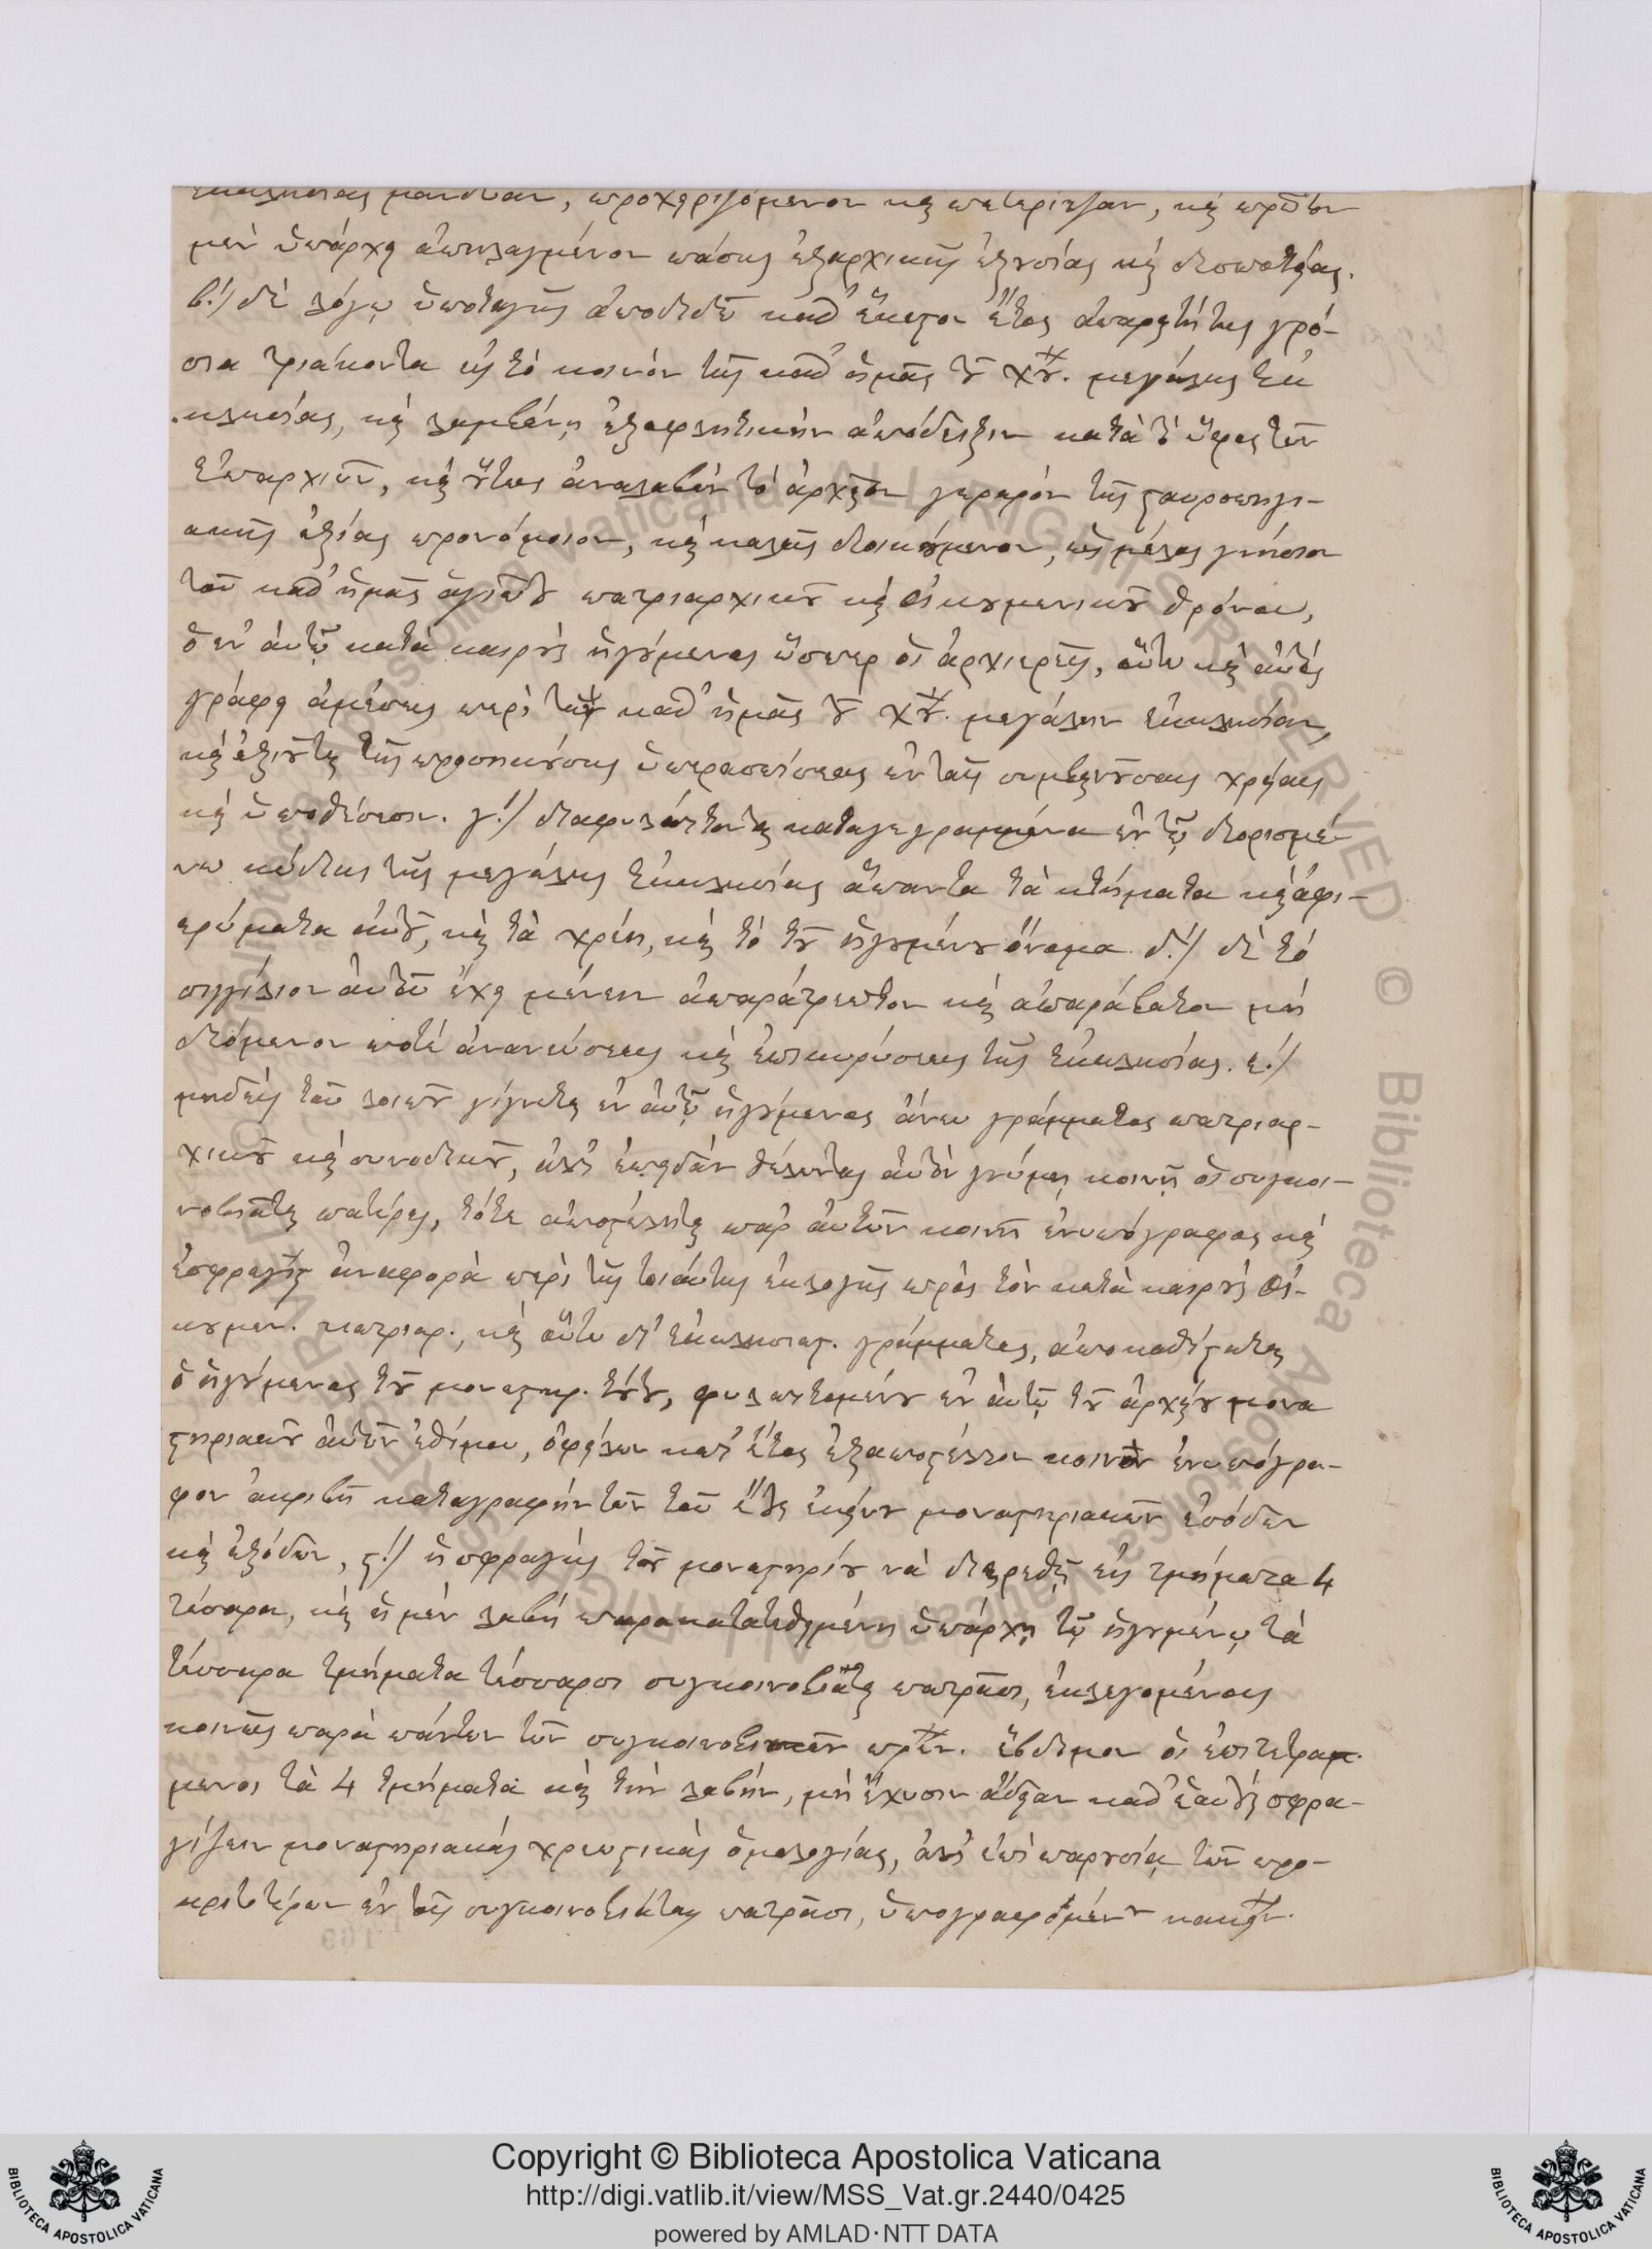 ἐκκλησίας μανδύαν, προχειριζόμενον καὶ πατερίτζαν, καὶ πρῶτον
μὲν ὑπάρχῃ ἀπηλλαγμένον πάσης ἐξαρχικῆς ἐξουσίας καὶ δεσποτείας.
β!/ δὲ λόγῳ ὑποταγῆς ἀποδιδῷ καθ' ἕκαστον ἔτος ἀπαραιτήτως γρό-
σια τριάκοντα εἰς τὸ κοινὸν τῆς καθ' ἡμᾶς τοῦ χυ. μεγάλης ἐκ
κλησίας, καὶ λαμβάνῃ ἐξοφλητικὴν ἀπόδειξιν κατὰ τὸ ὕφος τῶν
ἐπαρχιῶν, καὶ οὕτως ἀναλαβὸν τὸ ἀρχαῖον γεραρὸν τῆς σταυροπηγι-
ακῆς ἀξίας προνόμοιον, καὶ καλῶς διοικούμενον, ὡς μέλος γνήσιον
τοῦ καθ' ἡμᾶς ἁγιωτ. πατριαρχικοῦ καὶ οἰκουμενικοῦ θρόνου,
ὁ ἐν αὐτῷ κατὰ καιροὺς ἡγούμενος ὥσπερ οἱ ἀρχιερεῖς, οὕτω καὶ αὐτὸς
γράφῃ ἀμέσως περὶ τὴν καθ' ἡμᾶς τοῦ χυ. μεγάλην ἐκκλησίαν,
καὶ ἀξιοῦται τῆς προσηκούσης ὑπερασπίσεως ἐν ταῖς συμβαινούσαις χρείαις
καὶ ὑποθέσεσιν. γ!/ διαφυλάττονται καταγεγραμμένα ἐν τῷ διορισμέ-
νῳ κώδικι τῆς μεγάλης ἐκκλησίας ἅπαντα τὰ κτήματα καὶ ἀφι-
ερώματα αὐτοῦ, καὶ τὰ χρέη, καὶ τὸ τοῦ ἡγουμένου ὄνομα. δ!/ δὲ τὸ
σιγγίλλιον αὐτοῦ ἔχῃ μένειν ἀπαράτρεπτον καὶ ἀπαράβατον μὴ
δεόμενον ποτὲ ἀνανεύσεως καὶ ἐπικυρώσεως τῆς ἐκκλησίας. ε!/
μηδεὶς τοῦ λοιποῦ γίγνεται ἐν αὐτῷ ἡγούμενος ἄνευ γράμματος πατριαρ-
χικοῦ καὶ συνοδικοῦ, ἀλλ' ἐπειδὰν θέλωνται αὐτὸν γνώμῃ κοινῇ οἱ συγκοι-
νοβιᾶται πατέρες, τότε ἀποστέλληται παρ' αὐτῶν κοινῆ ἐνυπόγραφος καὶ
ἐσφραγις. ἀναφορὰ περὶ τῆς τοιάυτης ἐκλογῆς πρὸς τὸν κατὰ καιροὺς οἰ-
κουμεν. πατριαρ., καὶ οὕτω δι' ἐκκλησιαστ. γράμματος, ἀποκαθίσταται
ὁ ἡγούμενος τοῦ μοναστηρ. τούτου, φυλαττομένου ἐν αὐτῷ τοῦ ἀρχαίου μονα
στηριακοῦ αὐτῶν ἐθίμου, ὀφείλων κατ' ἔτος ἐξαποστέλλειν κοινὸν ἐνυπόγρα-
φον ἀκριβῆ καταγραφὴν τῶν τοῦ ἔτους ἐκείνου μοναστηριακῶν ἐσόδων
καὶ ἐξόδων, ς!/ ἡ σφραγὶς τοῦ μοναστηρίου νὰ διαιρεθῇ εἰς τμήματα 4
τέσαρα, καὶ ἡ μὲν λαβὴ παρακατατεθειμένη ὑπάρχῃ τῷ ἡγουμένῳ τὰ
τέσσαρα τμήματα τέσσαρσι συγκοινοβιάταις πατράσι, ἐκλεγομένοις
κοινῶς παρὰ πάντων τῶν συγκοινοβιατῶν πρων. ἕβδομον οἱ ἐπιτετραμ-
μένοι τὰ 4 τμήματα καὶ τὴν λαβὴν, μὴ ἔχουσιν ἄδειαν καθ' ἑαυτοὺς σφρα-
γίζειν μοναστηριακὰς χρεωστικὰς ὁμολογίας, ἀλλ' ἐπὶ παρουσίᾳ τῶν προ-
κριτωτέρων ἐν τοῖς συγκοινοβιάταις πατράσι, ὑπογραφομένων